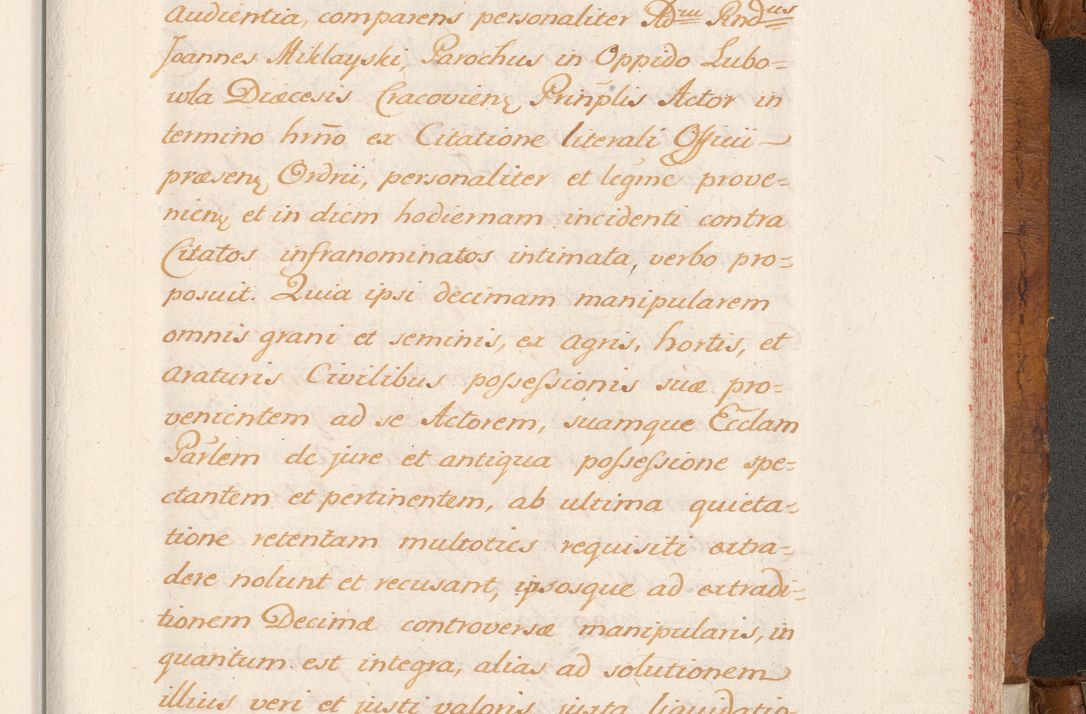 Audientia, comparens personaliter Adm Rndus
Joannes Miklayski, Parochus in Oppido Lubo=
wla Diæcesis Cracovien, Prinplis Actor in
termino hrno ex Citatione literali Officii
præsen, Ordrii, personaliter et legme prove=
nien, et in diem hodiernam incidenti contra
Citatos infranominatos intimata, verbo pro=
posuit. Quia ipsi decimam manipularem
omnis grani et seminis, ex agris, hortis, et
araturis Civilibus possessionis suæ pro=
venientem ad se Actorem, suamque Ecclam
Parlem de jure et antiqua possessione spe=
ctantem et pertinentem, ab ultima quieta=
tione retentam multoties requisiti extra=
dere nolunt et recusant, ipsosque ad extradi=
tionem Decimæ controversæ manipularis, in
quantum est integra, alias ad solutionem
illius veri et justi valoris juxta liquidatio